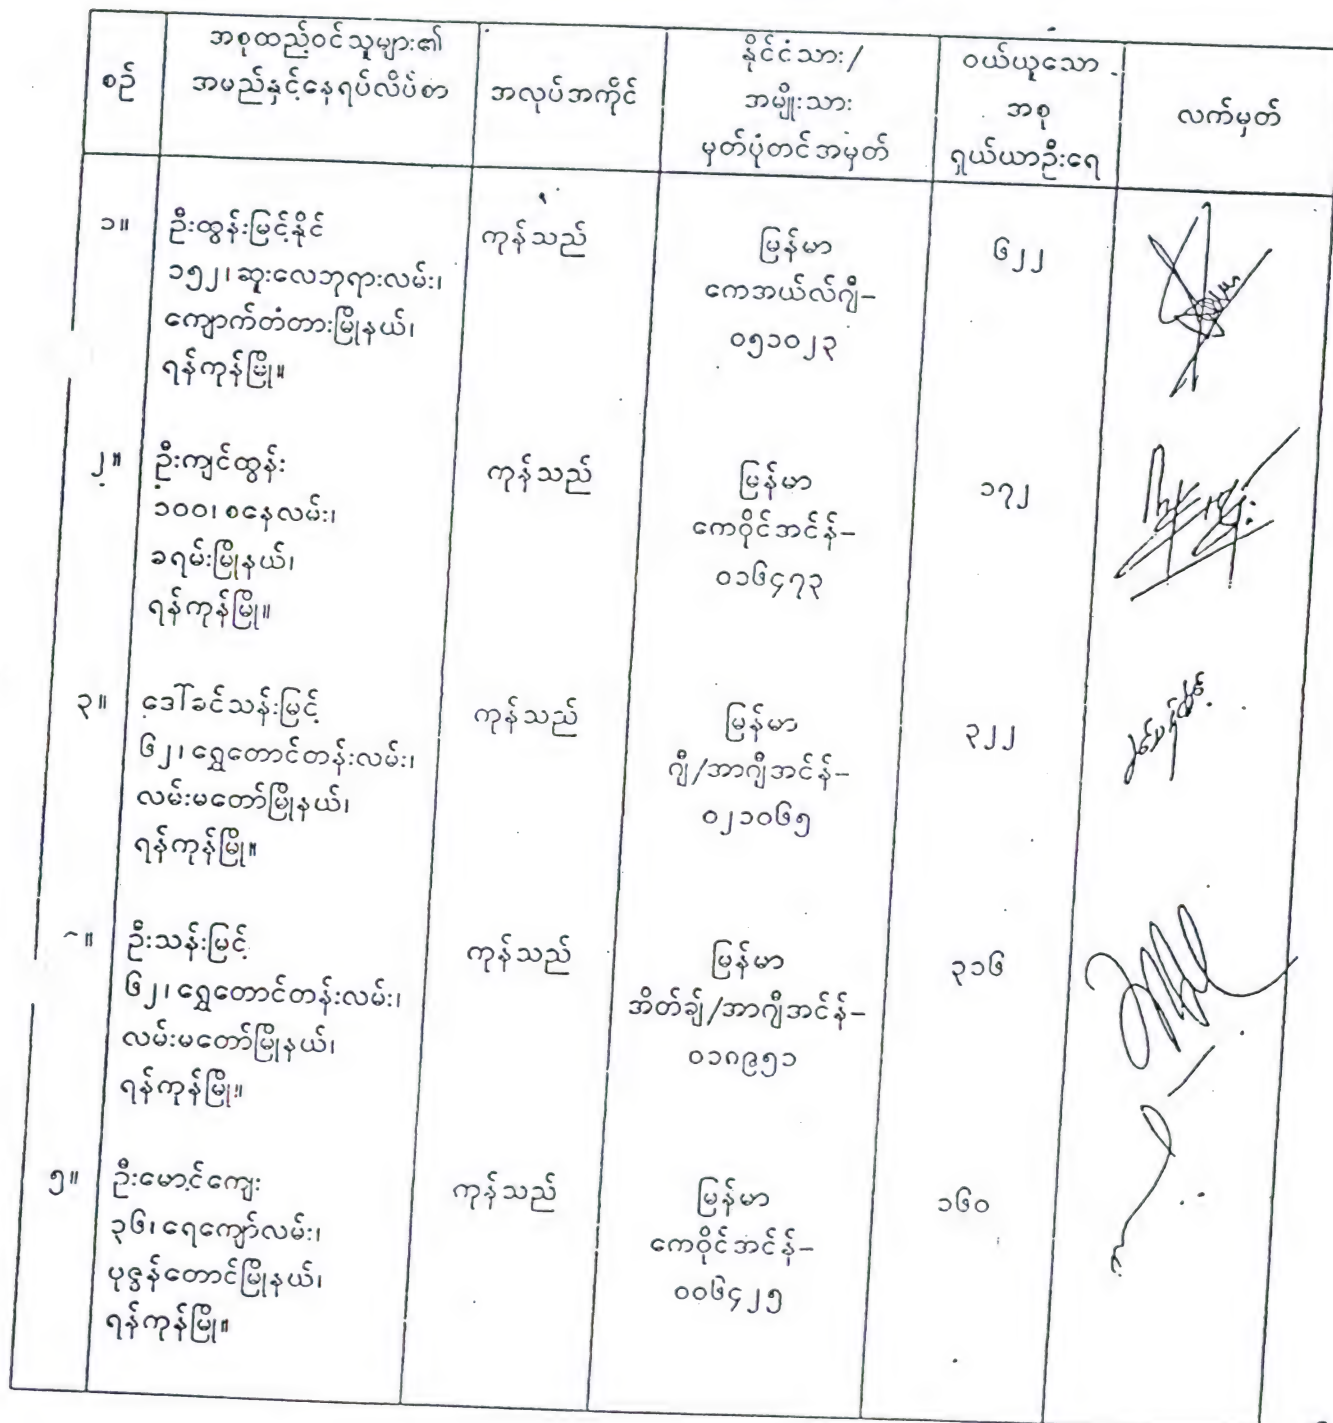 စဉ်
အစုထည့်ဝင်သူများ၏
အမည်နှင့်နေရပ်လိပ်စာ
အလုပ်အကိုင်
နိုင်ငံသား/
အမျိုးသား
မှတ်ပုံတင်အမှတ်
ဝယ်ယူသော
အစု
ရှယ်ယာဦးရေ
လက်မှတ်
၁။
ဦးထွန်းမြင့်နိုင်
၁၅၂၊ ဆူးလေဘုရားလမ်း၊
ကျောက်တံတားမြို့နယ်၊
ရန်ကုန်မြို့။
ကုန်သည်
မြန်မာ
ကေအယ်လ်ဂျီ-
၀၅၁၀၂၃
၆၂၂
၂။
ဦးကျင်ထွန်း
၁၀၀၊ စနေလမ်း၊
ခရမ်းမြို့နယ်၊
ရန်ကုန်မြို့။
ကုန်သည်
မြန်မာ
ကေဝိုင်အင်န်-
၀၁၆၄၇၃
၁၇၂
၃။
ဒေါ်ခင်သန်းမြင့်
၆၂၊ ရွှေတောင်တန်းလမ်း၊
လမ်းမတော်မြို့နယ်၊
ရန်ကုန်မြို့။
ကုန်သည်
မြန်မာ
ဂျီ/အာဂျီအင်န်-
၀၂၁၀၆၅
၃၂၂
ဦးသန်းမြင့်
၆၂၊ ရွှေတောင်တန်းလမ်း၊
လမ်းမတော်မြို့နယ်၊
ရန်ကုန်မြို့။
ကုန်သည်
မြန်မာ
အိတ်ချ်/အာဂျီအင်န်-
၀၁၈၉၅၁
၃၁၆
၅။
ဦးမောင်ကျေး
၃၆၊ ရေကျော်လမ်း၊
ပုဇွန်တောင်မြို့နယ်၊
ရန်ကုန်မြို့။
ကုန်သည်
မြန်မာ
ကေဝိုင်အင်န်-
၀၀၆၄၂၅
၁၆၀